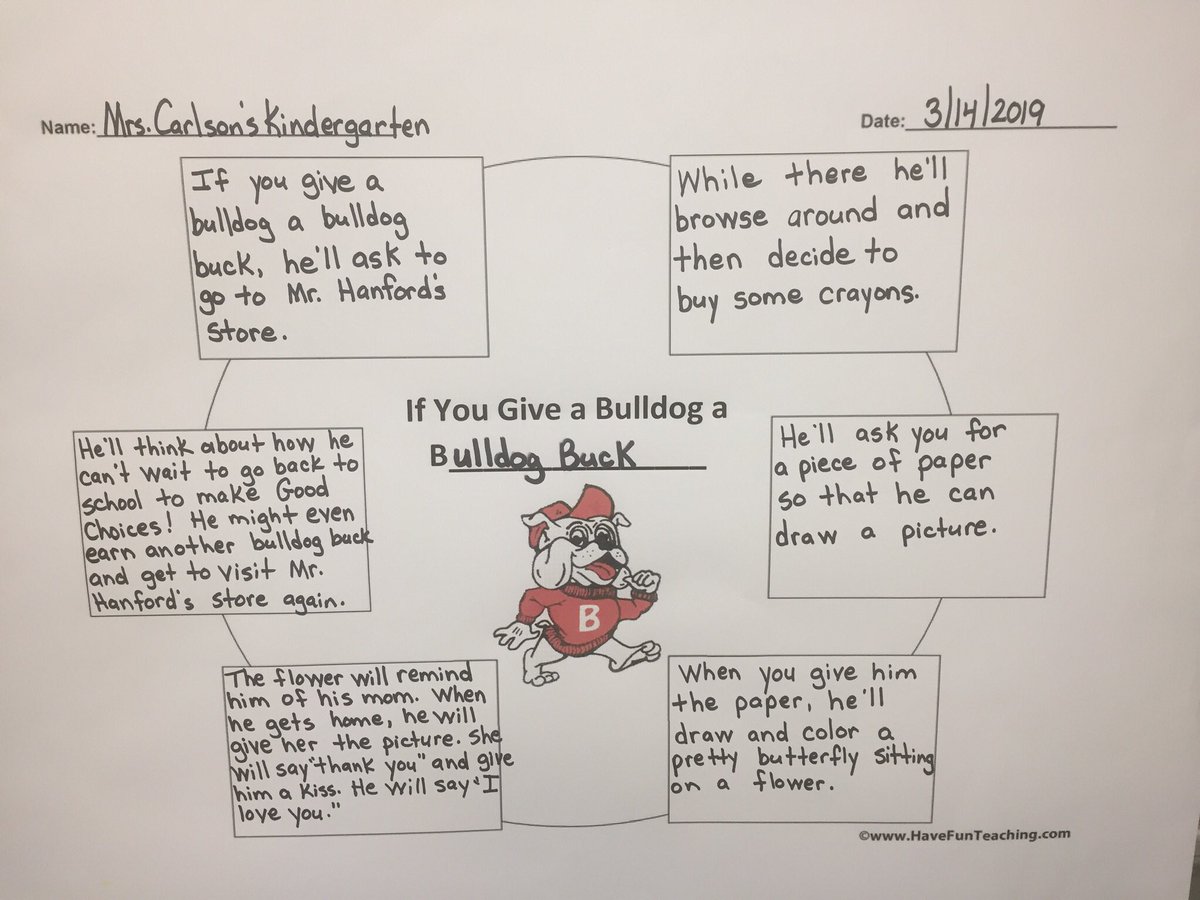 Name: Mrs. Carlson's Kindergarten
Date: 3/14/2019
If you give a
bulldog a bulldog
buck, he'll ask to
go to Mr. Hanford's
store.
While there he'll
browse around and
then decide to
buy some crayons.
If You Give a Bulldog a
Bulldog Buck
He'll ask you for
a piece of paper
so that he can
draw a picture.
When you give him
the paper, he'll
draw and color a
pretty butterfly sitting
on a flower.
The flower will remind
him of his mom. When
he gets home, he will
give her the picture. She
will say "thank you" and give
him a kiss. He will say "I
love you."
He'll think about how he
can't wait to go back to
school to make Good
Choices! He might even
earn another bulldog buck
and get to visit Mr.
Hanford's store again.
B
©www.HaveFunTeaching.com